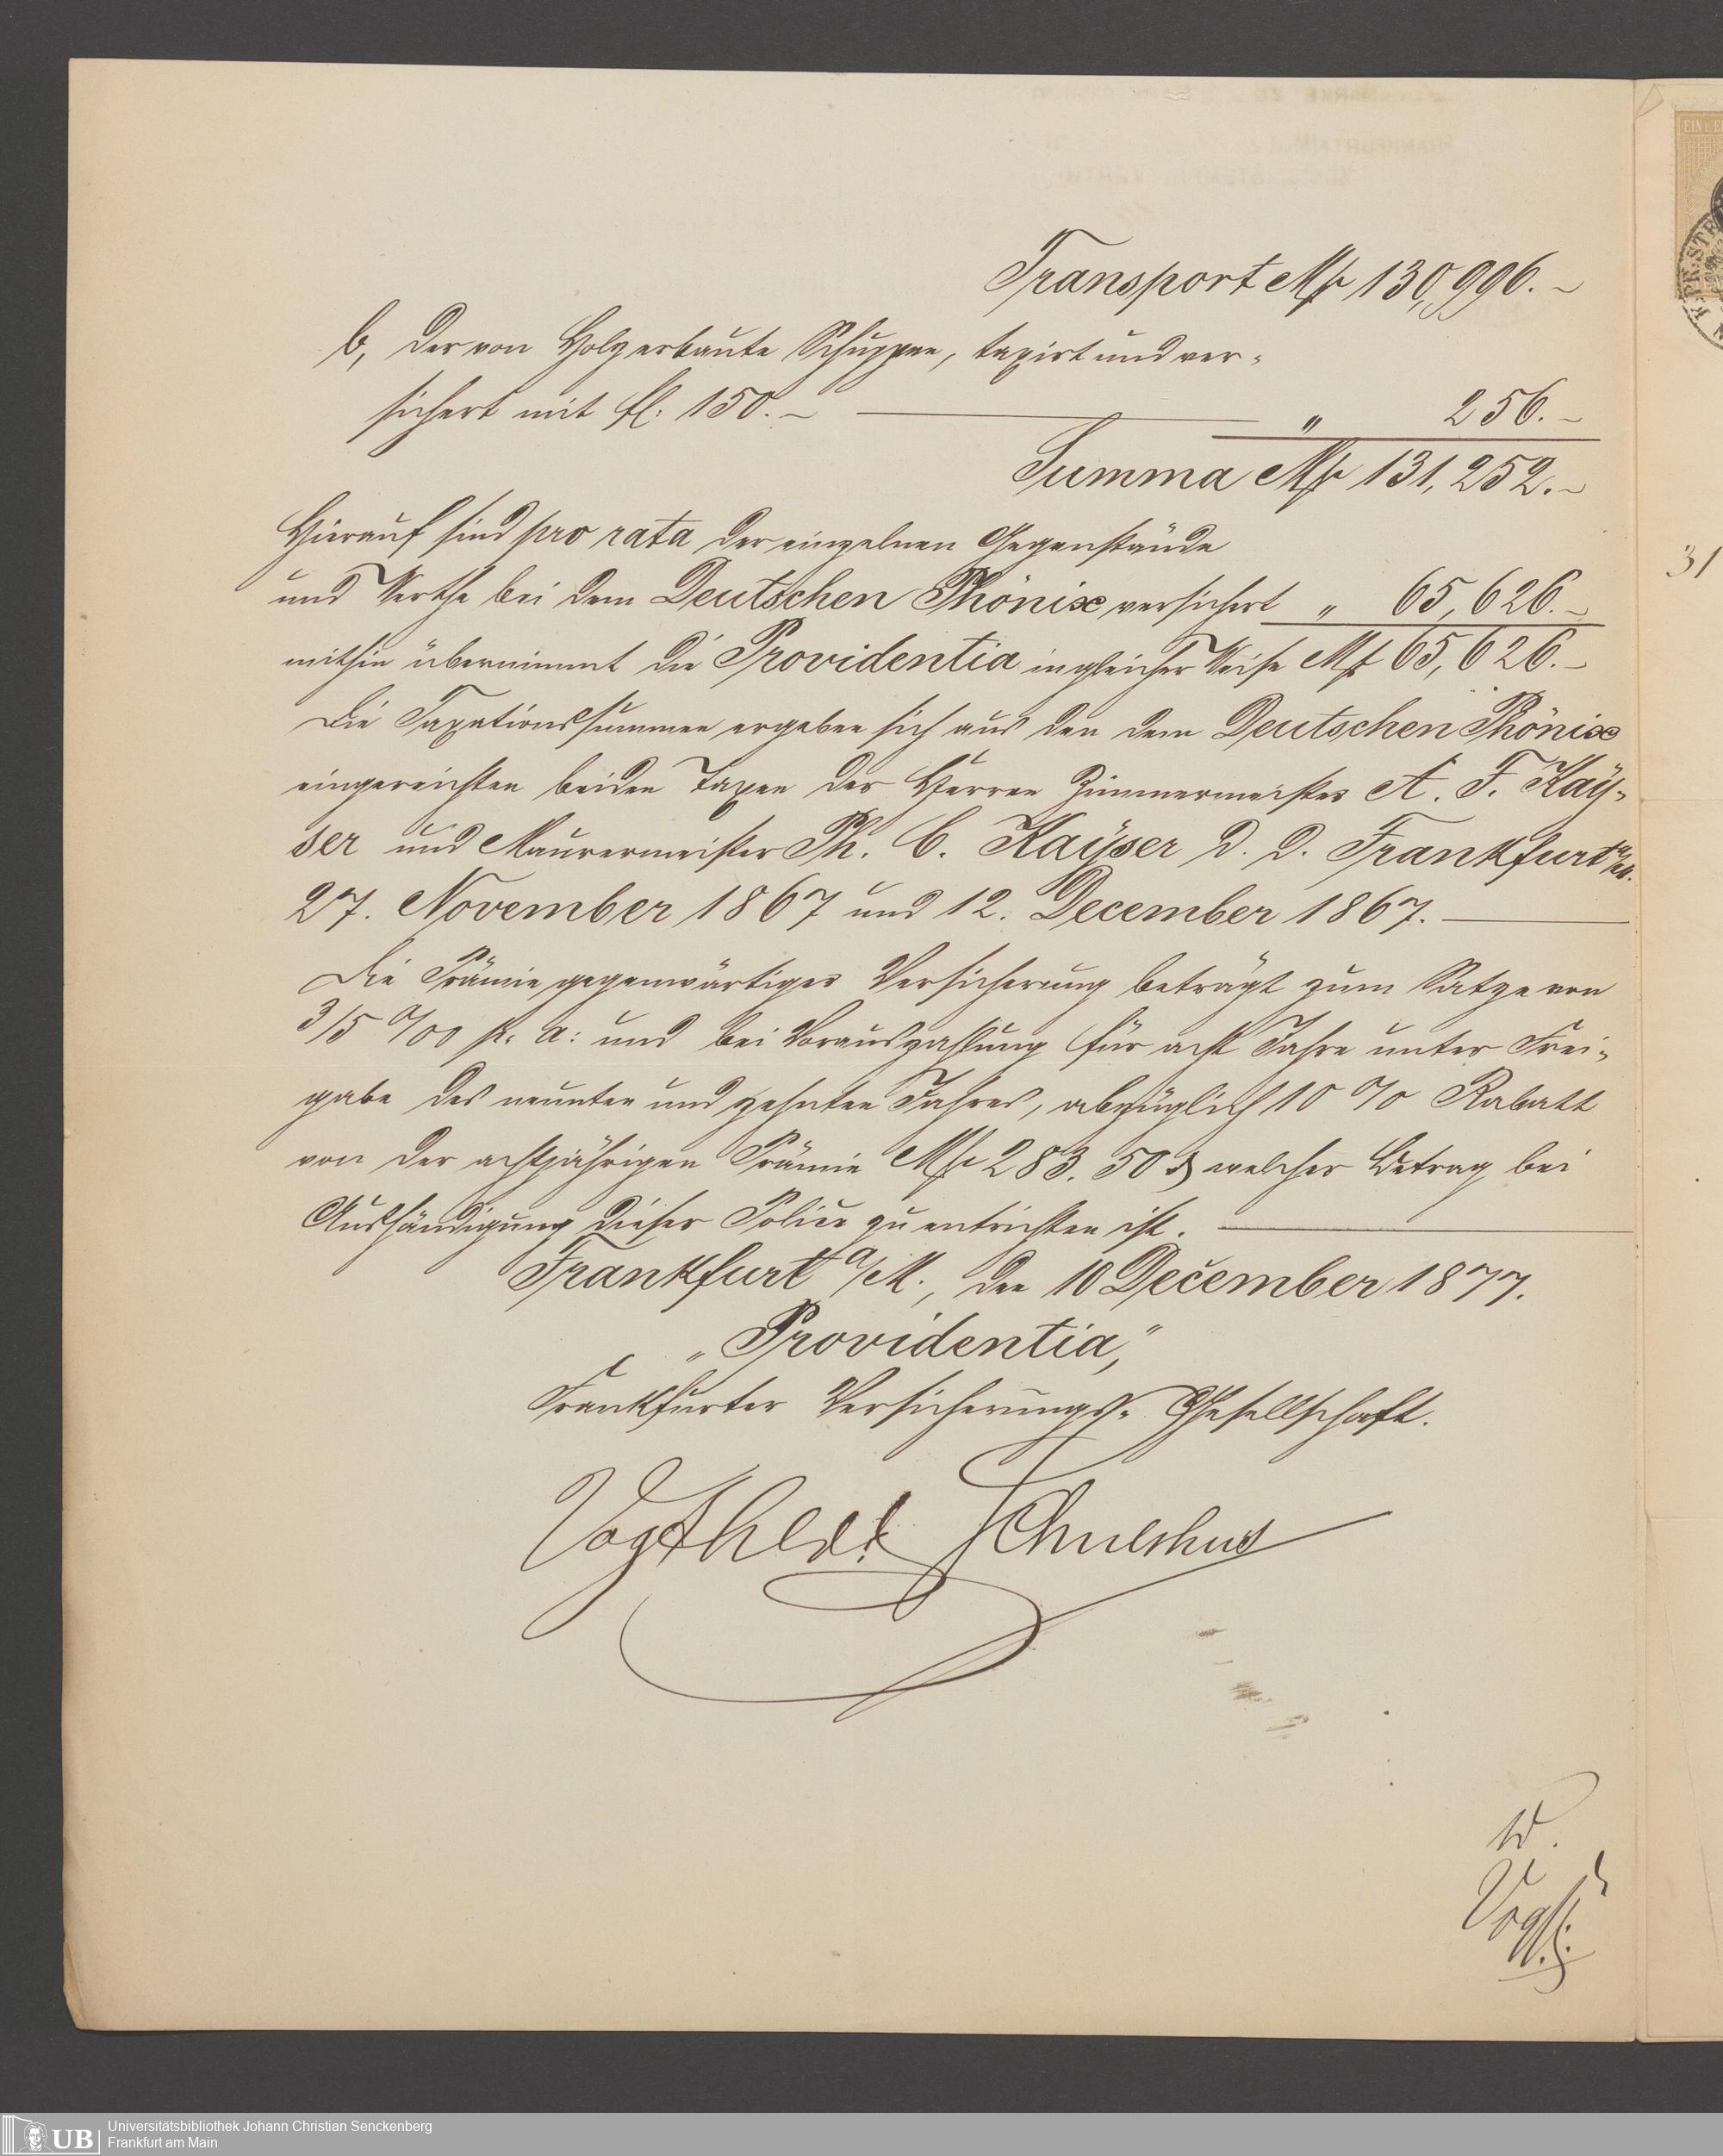 Transport Mk 130,996.–
b, der von Holz erbaute Schuppen, taxirt und ver-
sichert mit fl. 150.– „ 256.–
Summa Mk 131,252.–
Hierauf sind pro rata der einzelnen Gegenstände
und Werthe bei dem Deutschen Phönix versichert „ 65,626.–
mithin übernimmt die Providentia in gleicher Weise Mk 65,626.–
Die Taxationssummen ergeben sich aus den dem Deutschen Phönix
eingereichten beiden Taxen der Herren Zimmermeister A. F. Kay-
ser und Maurermeister Ph. C. Kayser d. d. Frankfurt a/M.
27. November 1867 und 12. December 1867.
Die Prämie gegenwärtiger Versicherung beträgt zum Satze von
3/5 ‰ p. a: und bei Vorauszahlung für acht Jahre unter Frei-
gabe des neunten und zehnten Jahres, abzüglich 10 % Rabatt
von der achtjährigen Prämie Mk 283. 50 ₰ welcher Betrag bei
Aushändigung dieser Police zu entrichten ist.
Frankfurt a/M., den 10 December 1877.
„Providentia,"
Frankfurter Versicherungs-Gesellschaft.
31
Universitätsbibliothek Johann Christian Senckenberg
UB Frankfurt am Main